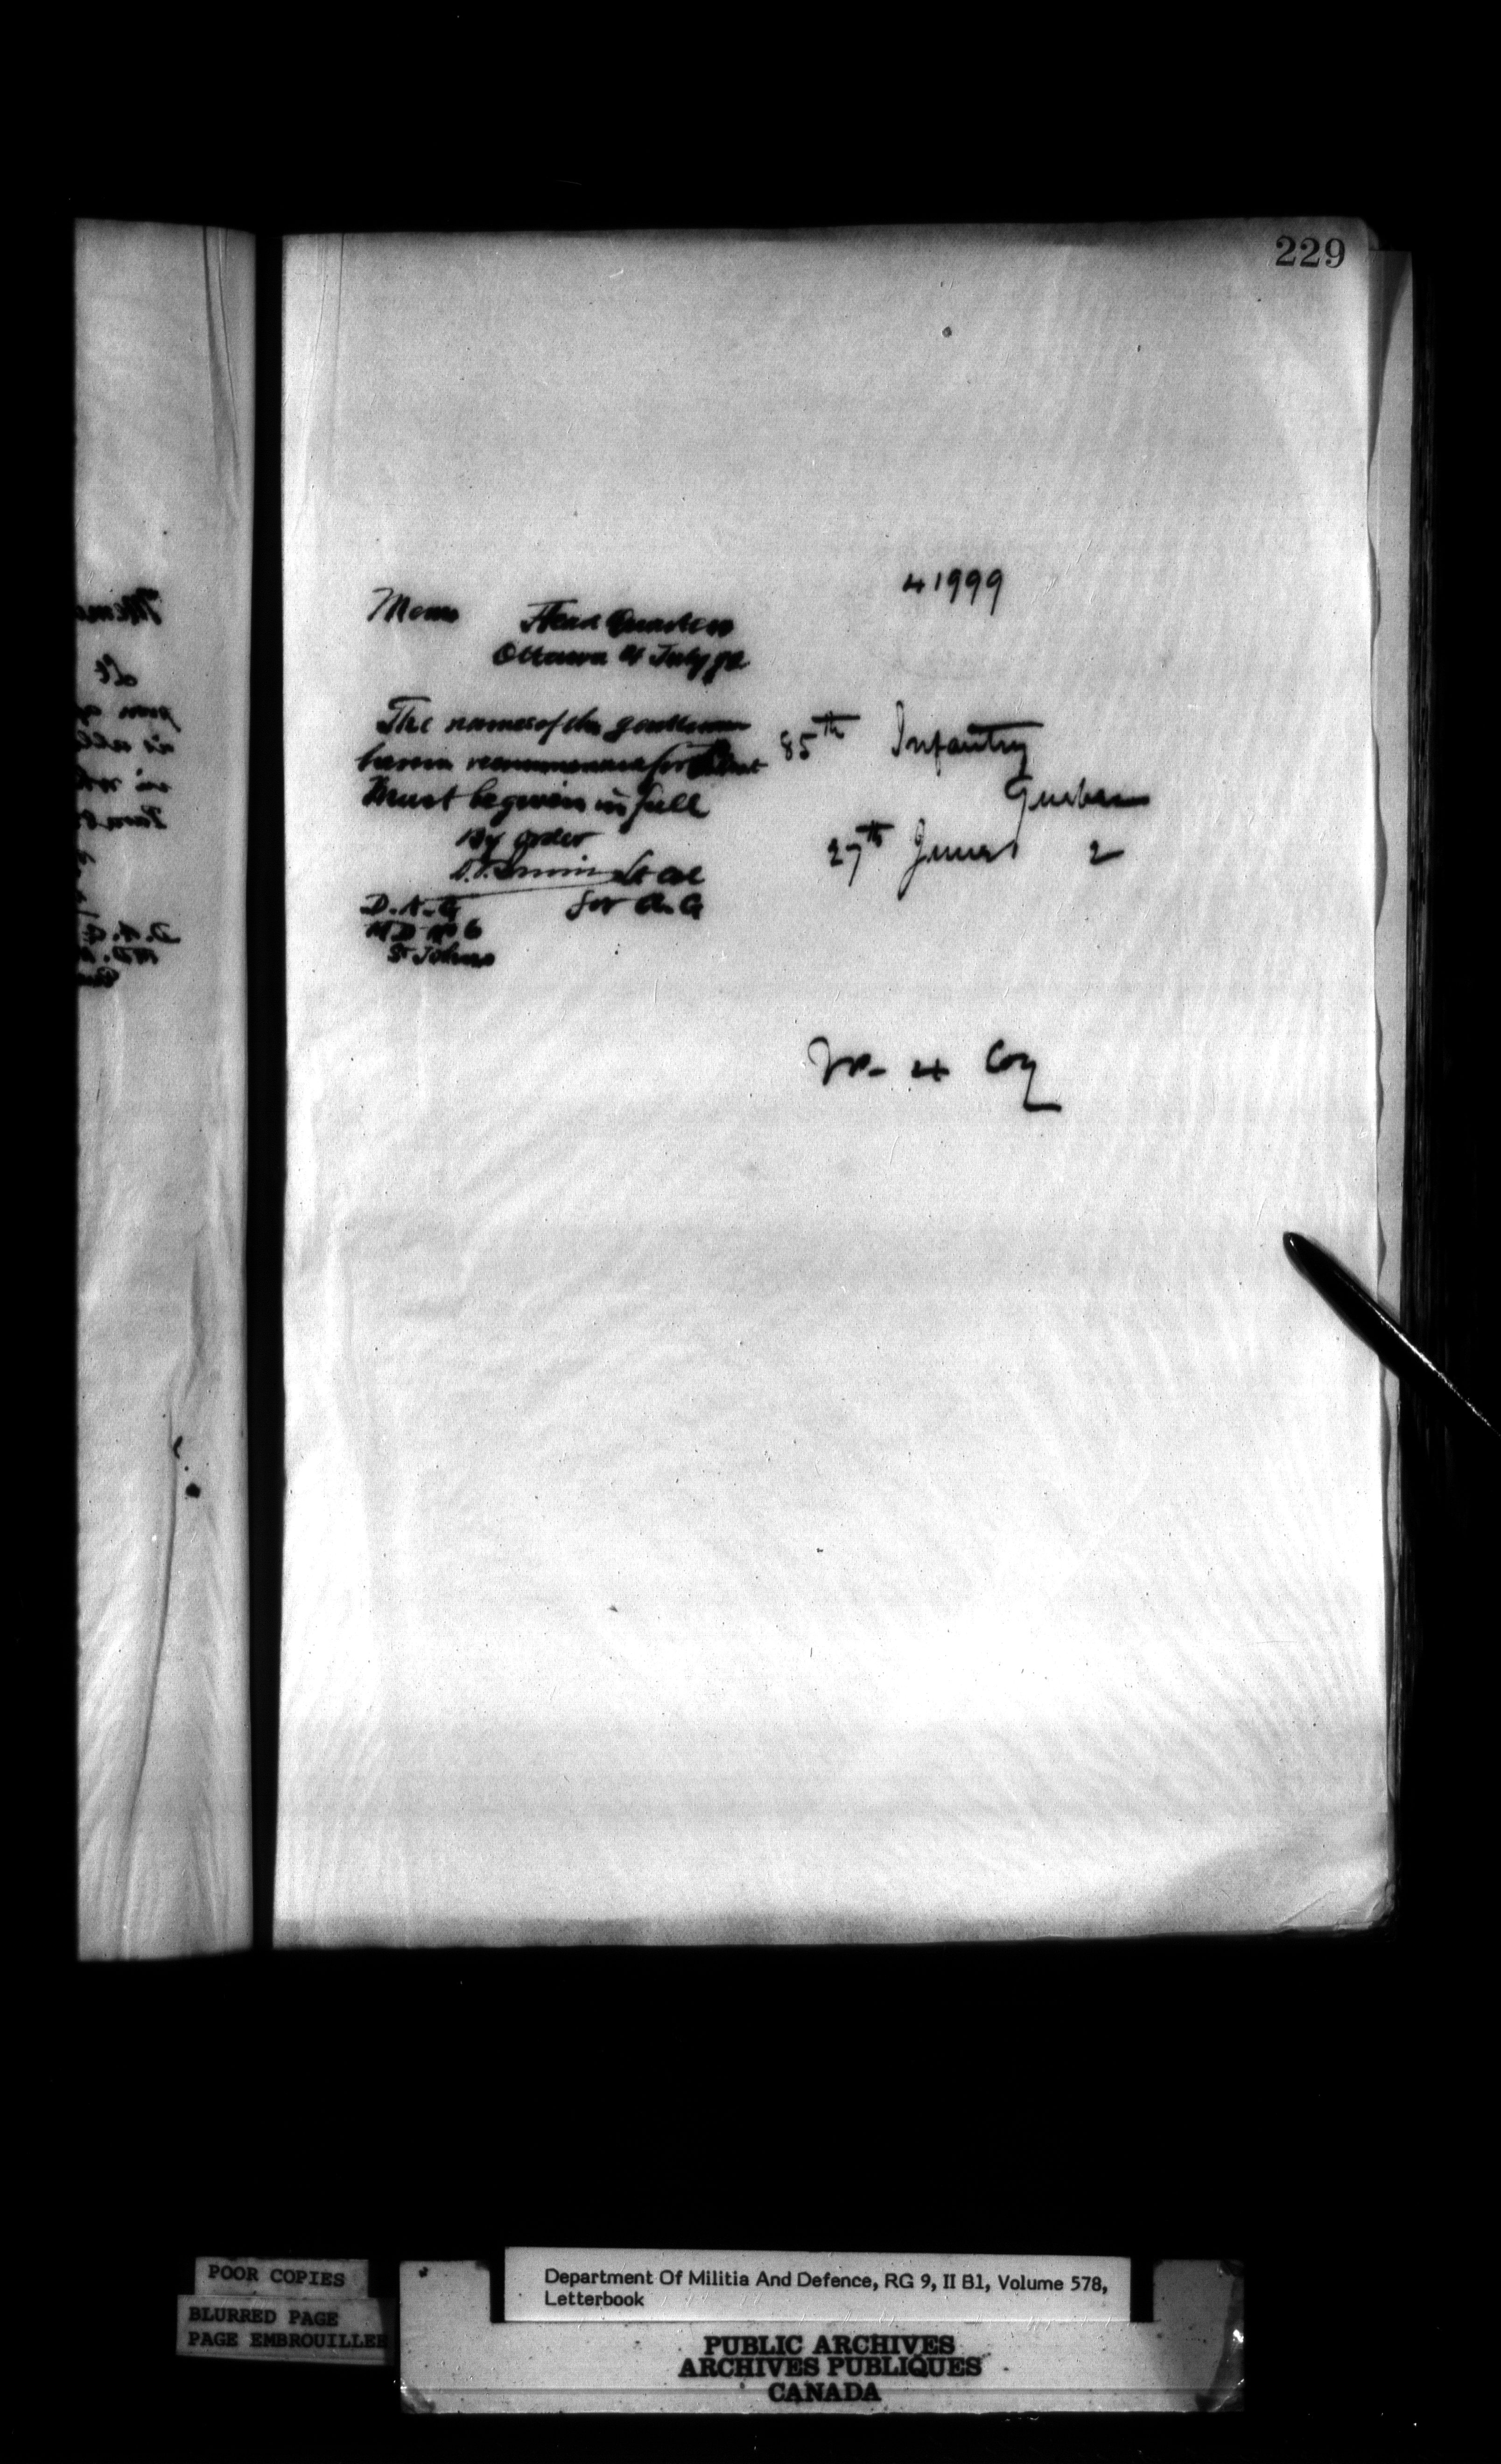 229
41999
Memo Head Quarters
Ottawa July
The names of the gentlemen
herein recommended for
Must be given in full
By order
Irwin Lt Col
D.A.G for A.G
MD No 6
St Johns
85th Infantry
Quebec
27th June 2
No 4 Coy
POOR COPIES
BLURRED PAGE
PAGE EMBROUILLEE
Department Of Militia And Defence, RG 9, II B1, Volume 578,
Letterbook
PUBLIC ARCHIVES
ARCHIVES PUBLIQUES
CANADA